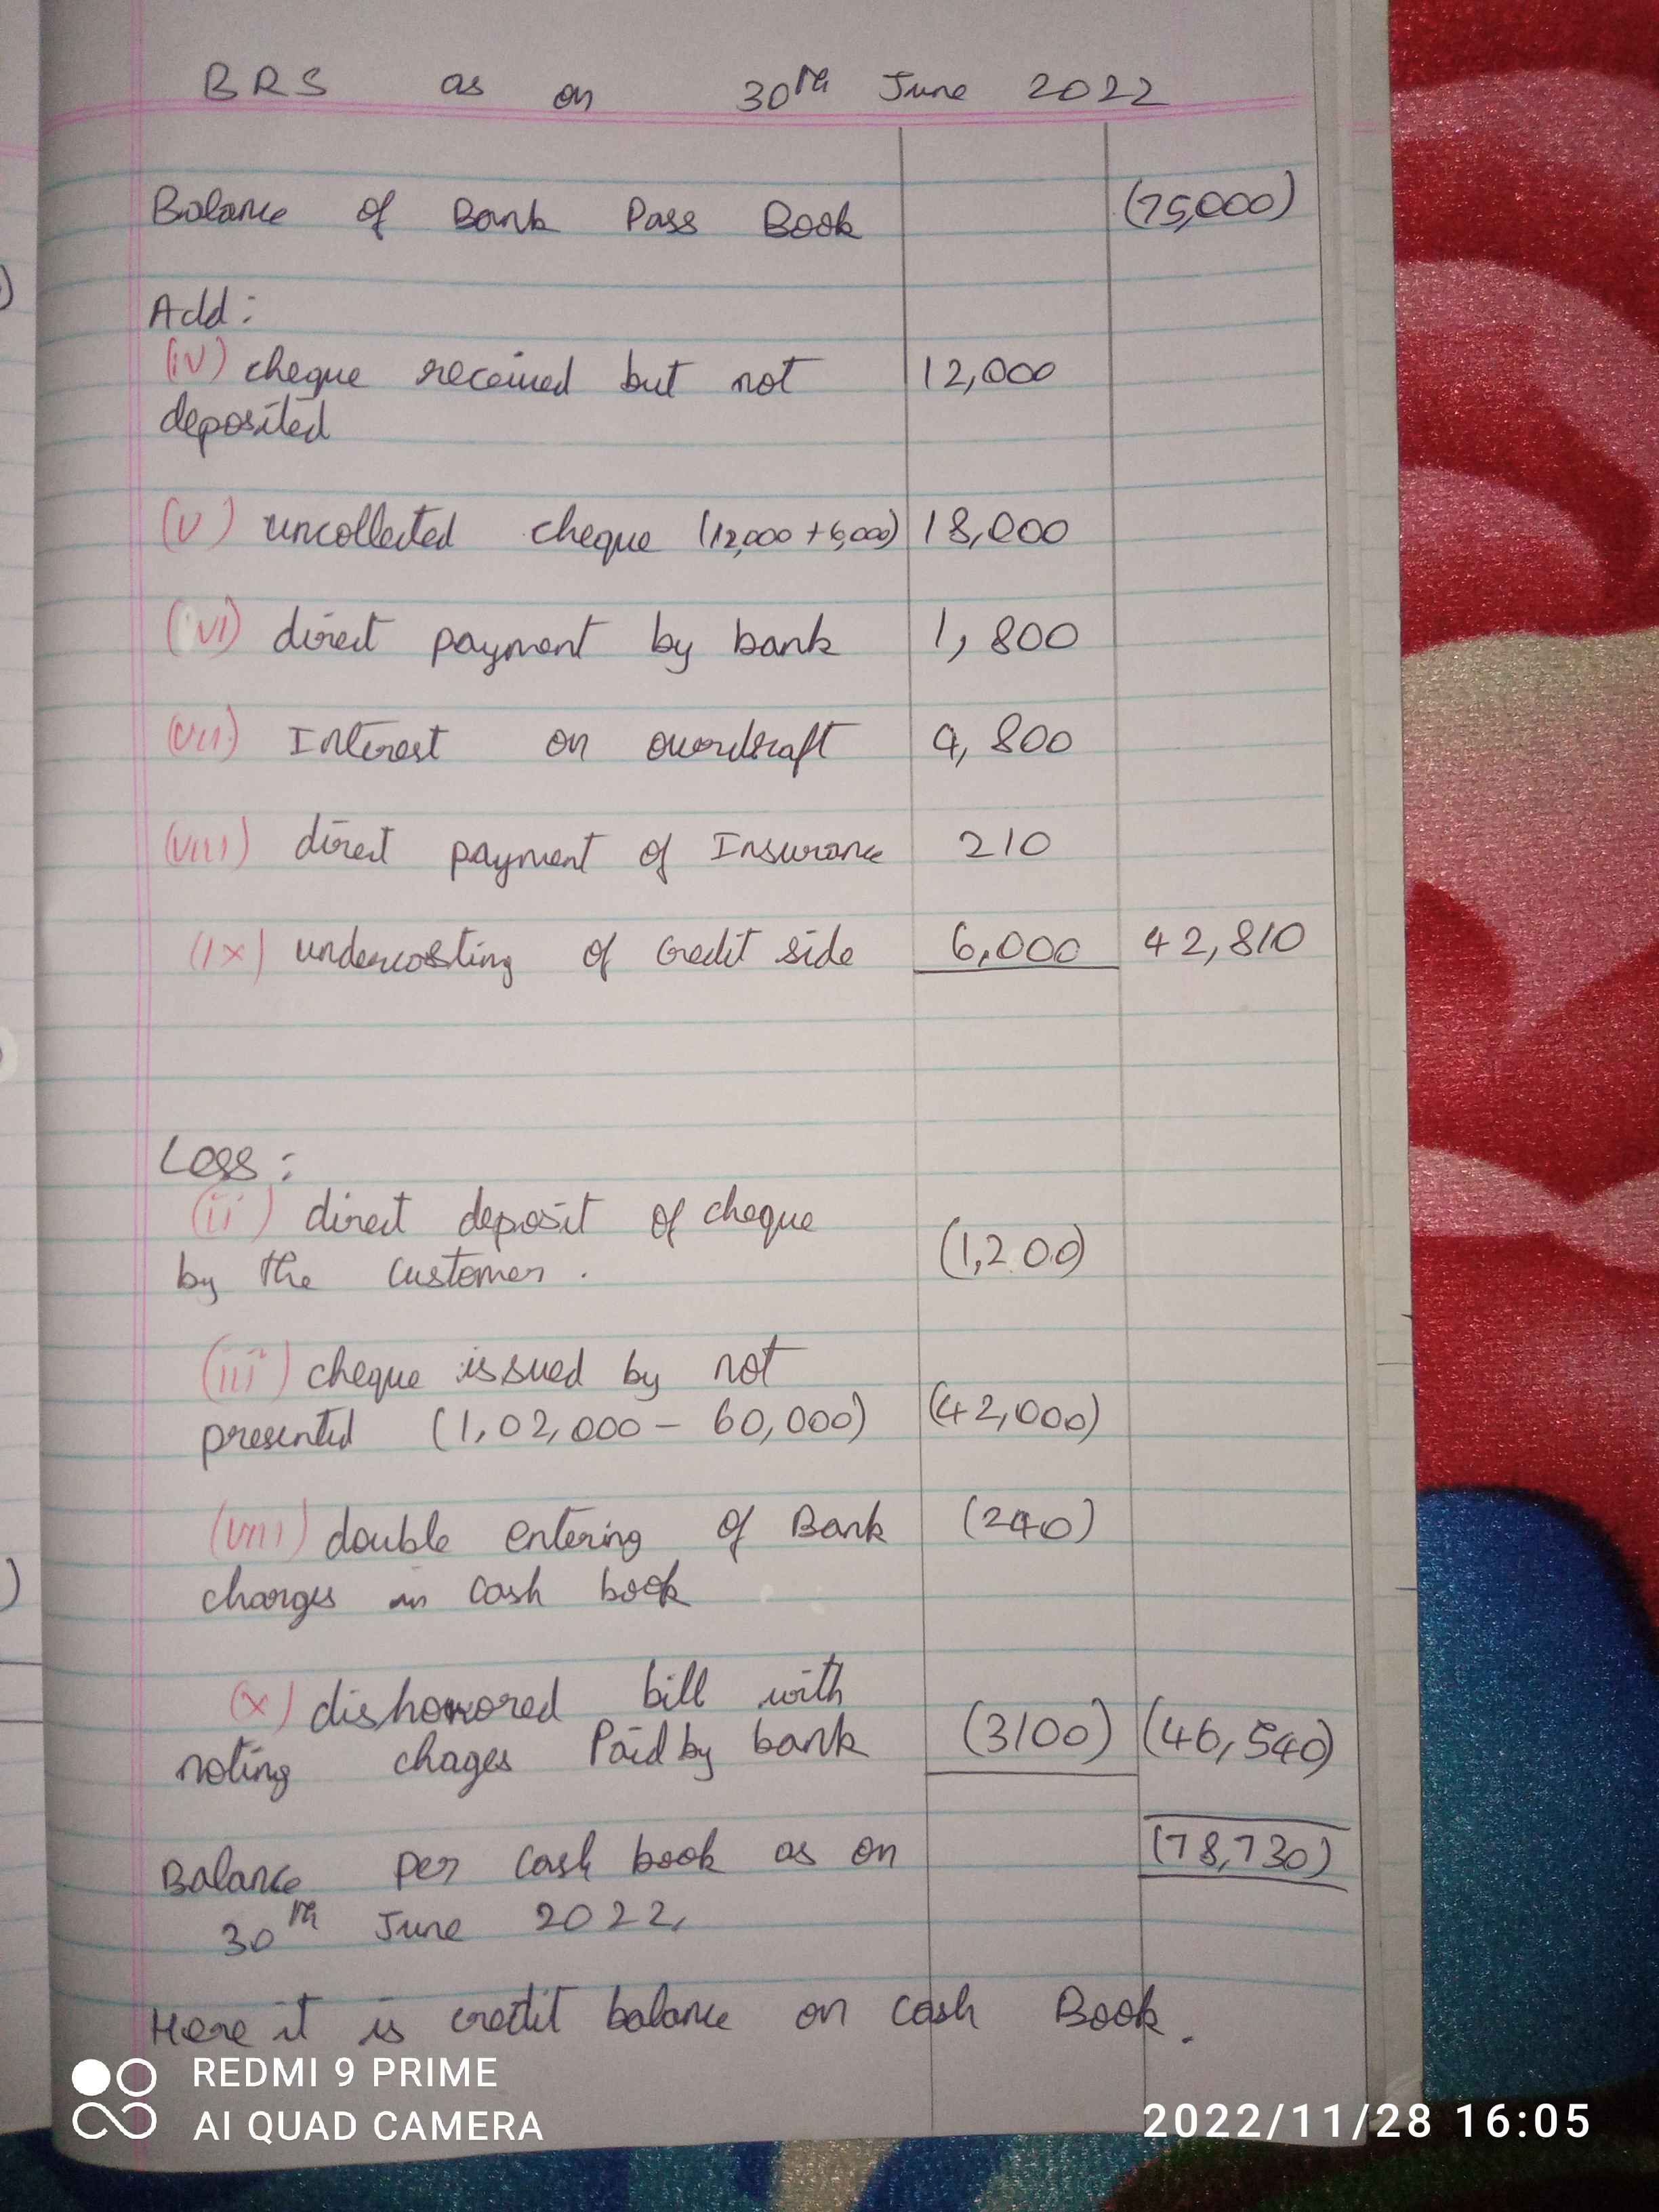 BRS as on 30th June 2022
Balance of Bank Pass Book (75,000)
Add:
(iv) cheque received but not 12,000
deposited
(v) uncollected cheque (12,000 + 6,000) 18,000
(vi) direct payment by bank 1,800
(vii) Interest on overdraft 4,800
(viii) direct payment of Insurance 210
(ix) undercasting of credit side 6,000 42,810
Less:
(ii) direct deposit of cheque
by the customer. (1,200)
(iii) cheque issued by not
presented (1,02,000 - 60,000) (42,000)
(viii) double entering of Bank (240)
charges in cash book
(x) dishonored bill with
noting chages Paid by bank (3100) (46,540)
Balance per cash book as on (78,730)
30th June 2022,
Here it is credit balance on cash Book.
REDMI 9 PRIME
AI QUAD CAMERA
2022/11/28 16:05